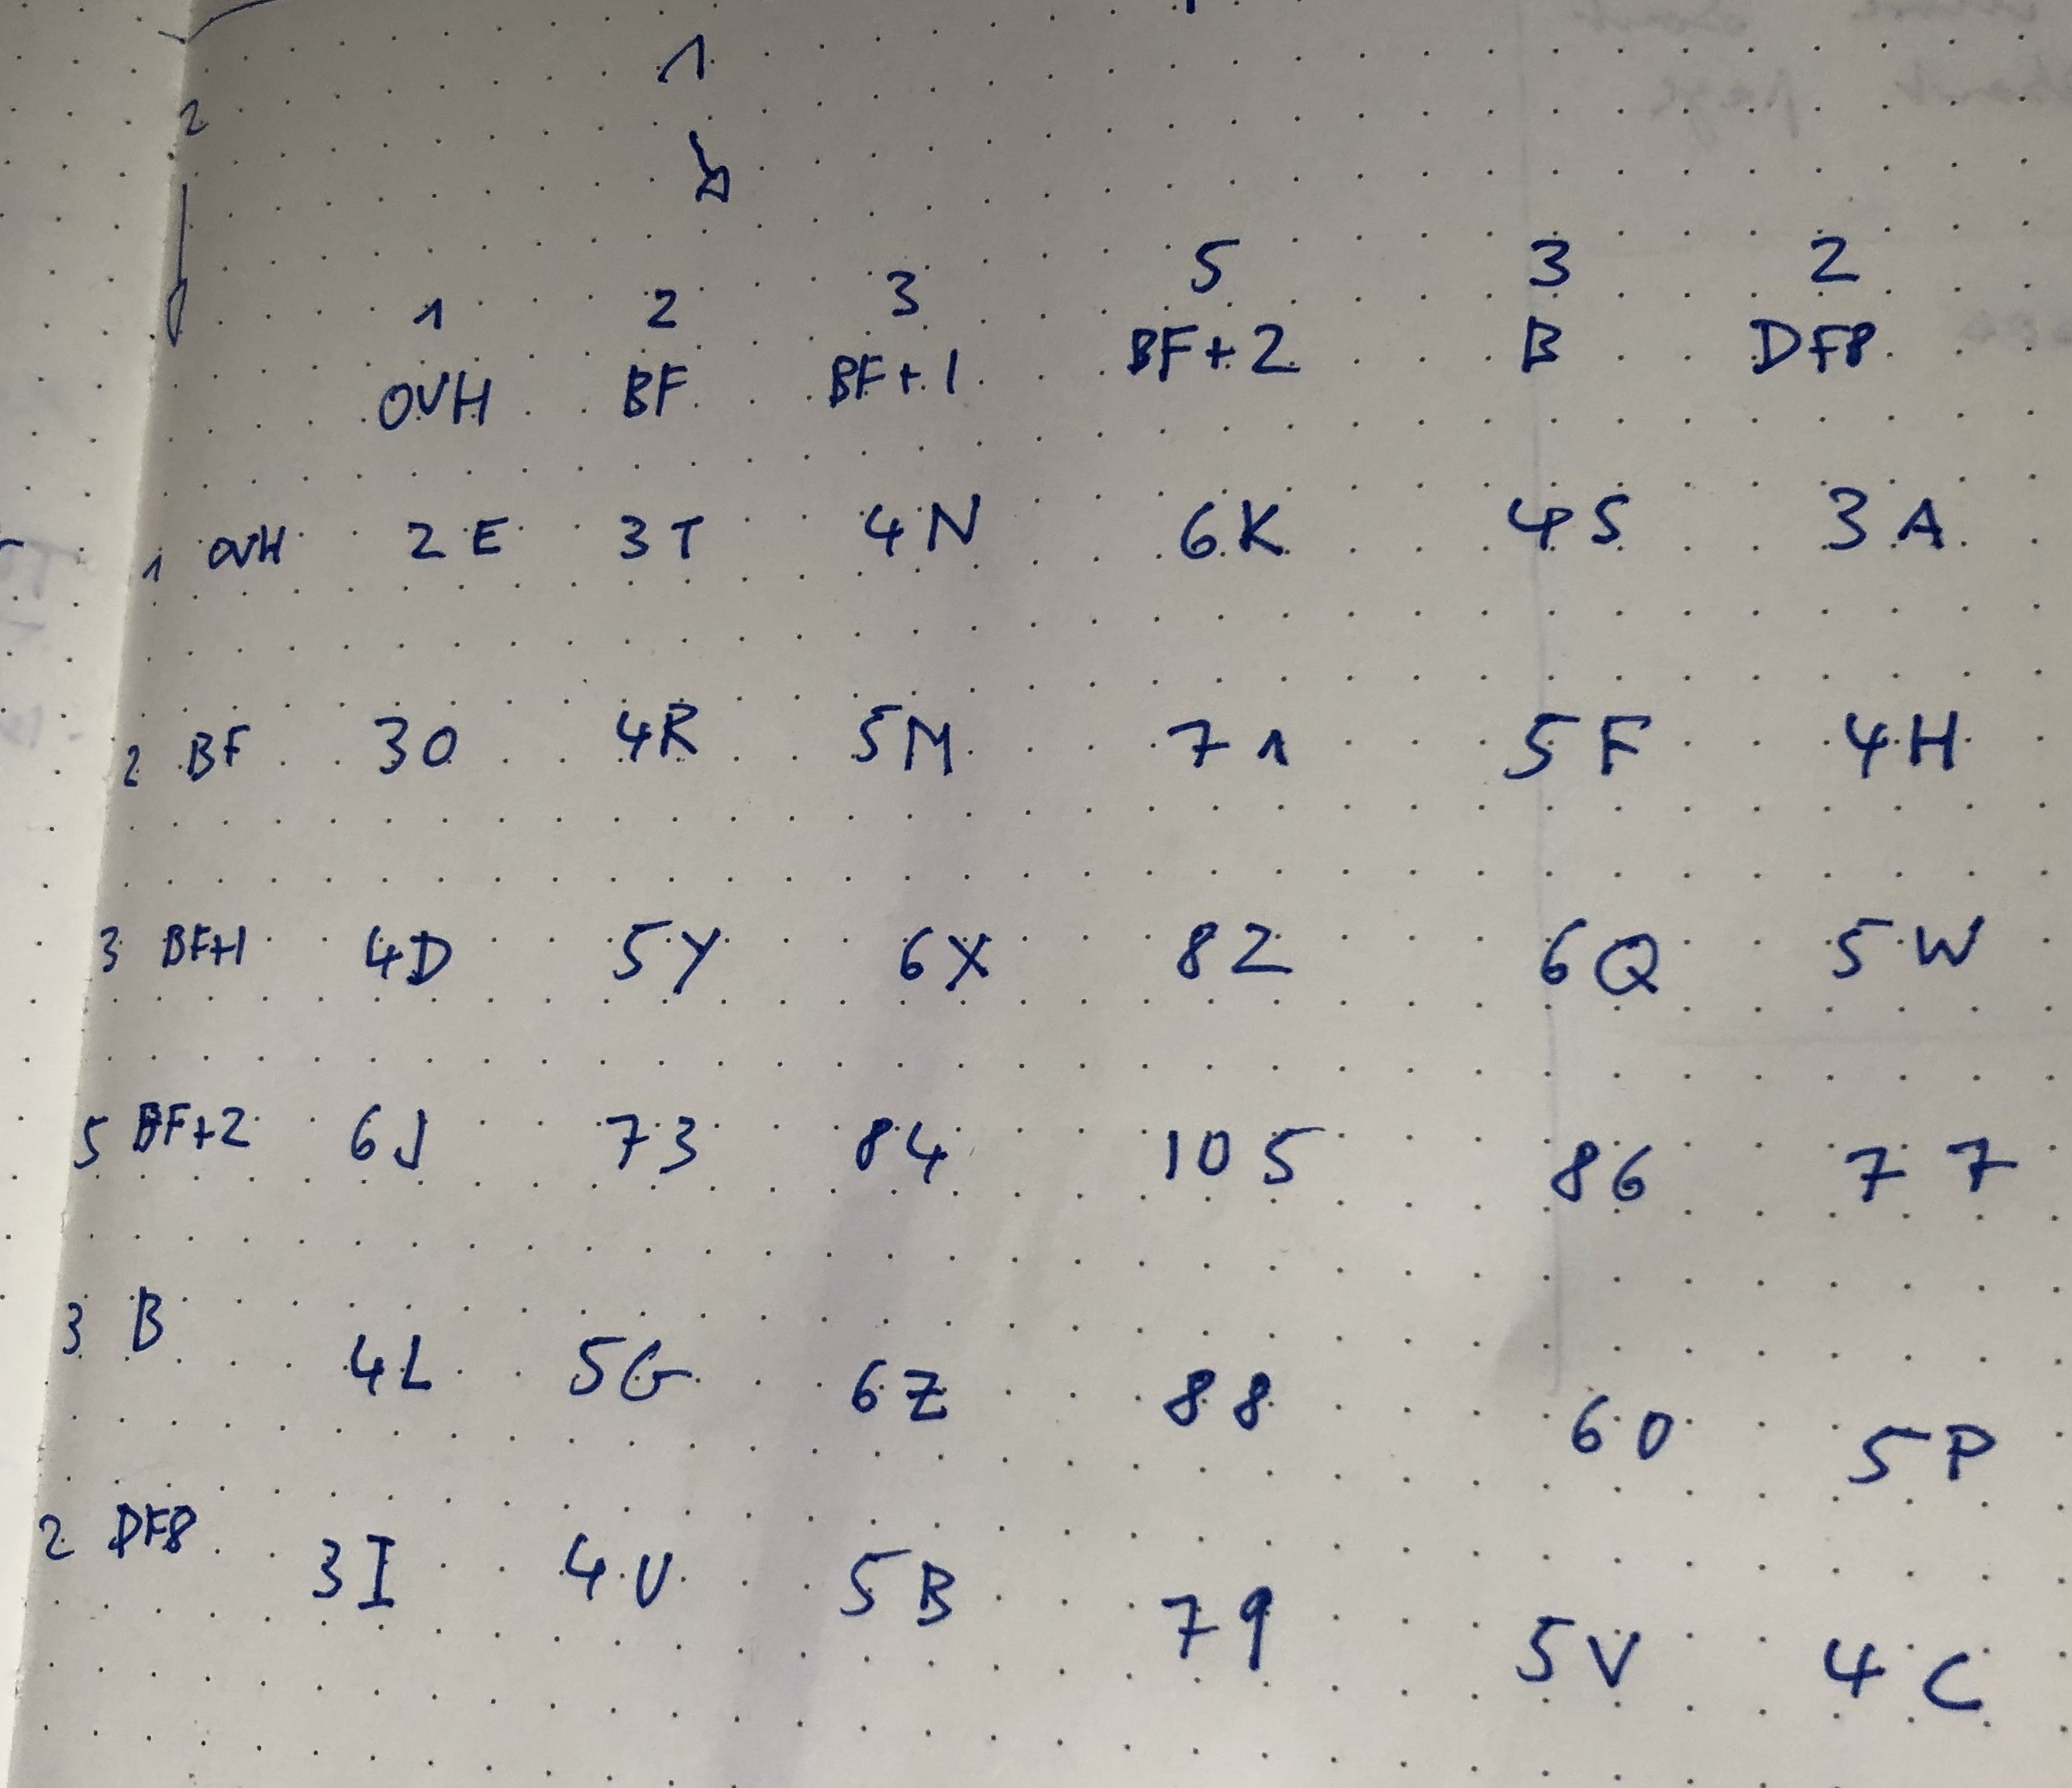 1
2
1 2 3 5 3 2
OVH BF BF+1 BF+2 B DF8
1 OVH 2E 3T 4N 6K 4S 3A
2 BF 3O 4R 5M 7 1 5F 4H
3 BF+1 4D 5Y 6X 8 2 6Q 5W
5 BF+2 6J 7 3 8 4 10 5 8 6 7 7
3 B 4L 5G 6Z 8 8 6 0 5P
2 DF8 3I 4U 5B 7 9 5V 4C